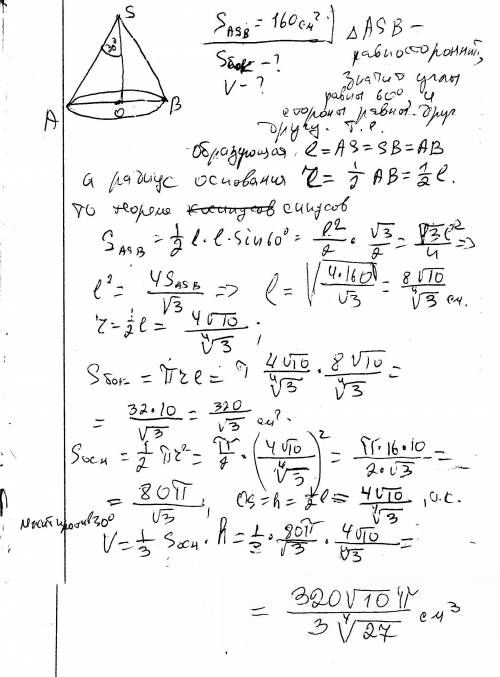 S
30°
A
O
B
S_ASB = 160 см²
Sбок - ?
V - ?
△ ASB –
равносторонний,
значит углы
равны 60° и
стороны равны друг
другу. Т.е.
образующая l = AS = SB = AB
а радиус основания r = 1/2 AB = 1/2 l.
По теореме синусов
S_ASB = 1/2 l · l · sin 60° = l²/2 · √3/2 = √3 l²/4 =>
l² = 4S_ASB/√3 => l = √(4·160/√3) = 8√10/⁴√3 см.
r = 1/2 l = 4√10/⁴√3 ;
Sбок = πrl = π 4√10/⁴√3 · 8√10/⁴√3 =
= 32·10/√3 = 320/√3 см².
Sосн = 1/2 πr² = π/2 · (4√10/⁴√3)² = π·16·10/2·√3 =
= 80π/√3 ; OS = h = 1/2 l = 4√10/⁴√3 , о.к.
лежит против 30°
V = 1/3 Sосн · h = 1/3 · 80π/√3 · 4√10/⁴√3 =
= 320√10 π/3 ⁴√27 см³